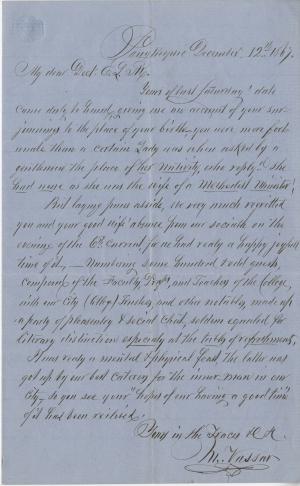 Poughkeepsie December 12th 1867.
My dear Doct.
Yours of last Saturday's date
came duly to hand, giving me an account of your
to the place of your birth - you were more fort-
unate than a certain Lady was when asked by a
gentleman the place of her Nativity, who reply.d she
had none as she was the wife of a Methodist Minister!
But laying puns asside, we very much regretted
you and your good wife's absence from our sociable on the
evening of the 6th current for we had realy a happy joyfull
time of it, - Numbering some hundred & odd guests,
composing of the Faculty, and Teachers of the College,
with our City and other notables, made up
a party of pleasantry & social cheer, seldom equaled for
literary distinction especialy at the table of refreshments,
It was realy a mental & physical feast, the latter was
got up by our best caterer for the inner man in our
City - so you see your "hopes of our having a good time"
of it has been realised.
Yours in the
M. Vassar